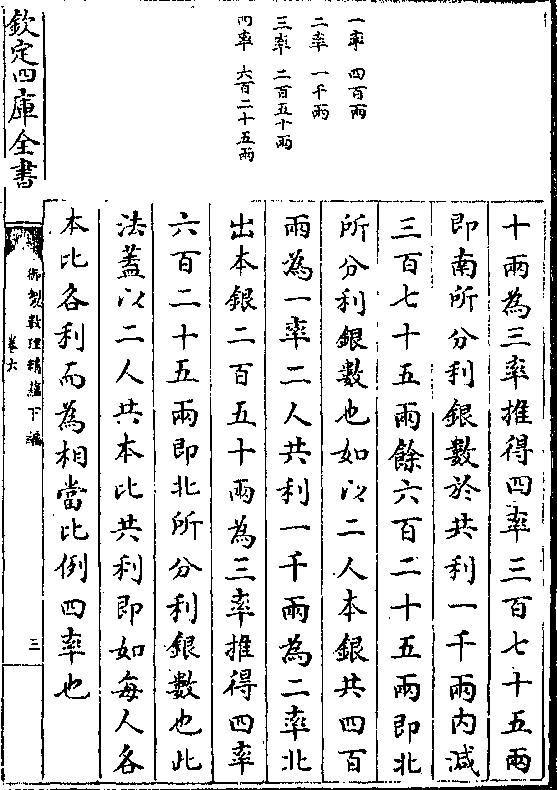 一率　四百兩
二率　一千兩
三率　二百五十兩
四率　六百二十五兩
十兩為三率推得四率三百七十五兩
即南所分利銀數於共利一千兩內減
三百七十五兩餘六百二十五兩即北
所分利銀數也如以二人本銀共四百
兩為一率二人共利一千兩為二率北
出本銀二百五十兩為三率推得四率
六百二十五兩即北所分利銀數也此
法蓋以二人共本比共利即如每人各
本比各利而為相當比例四率也
欽定四庫全書
御製數理精蘊下編
卷六
三